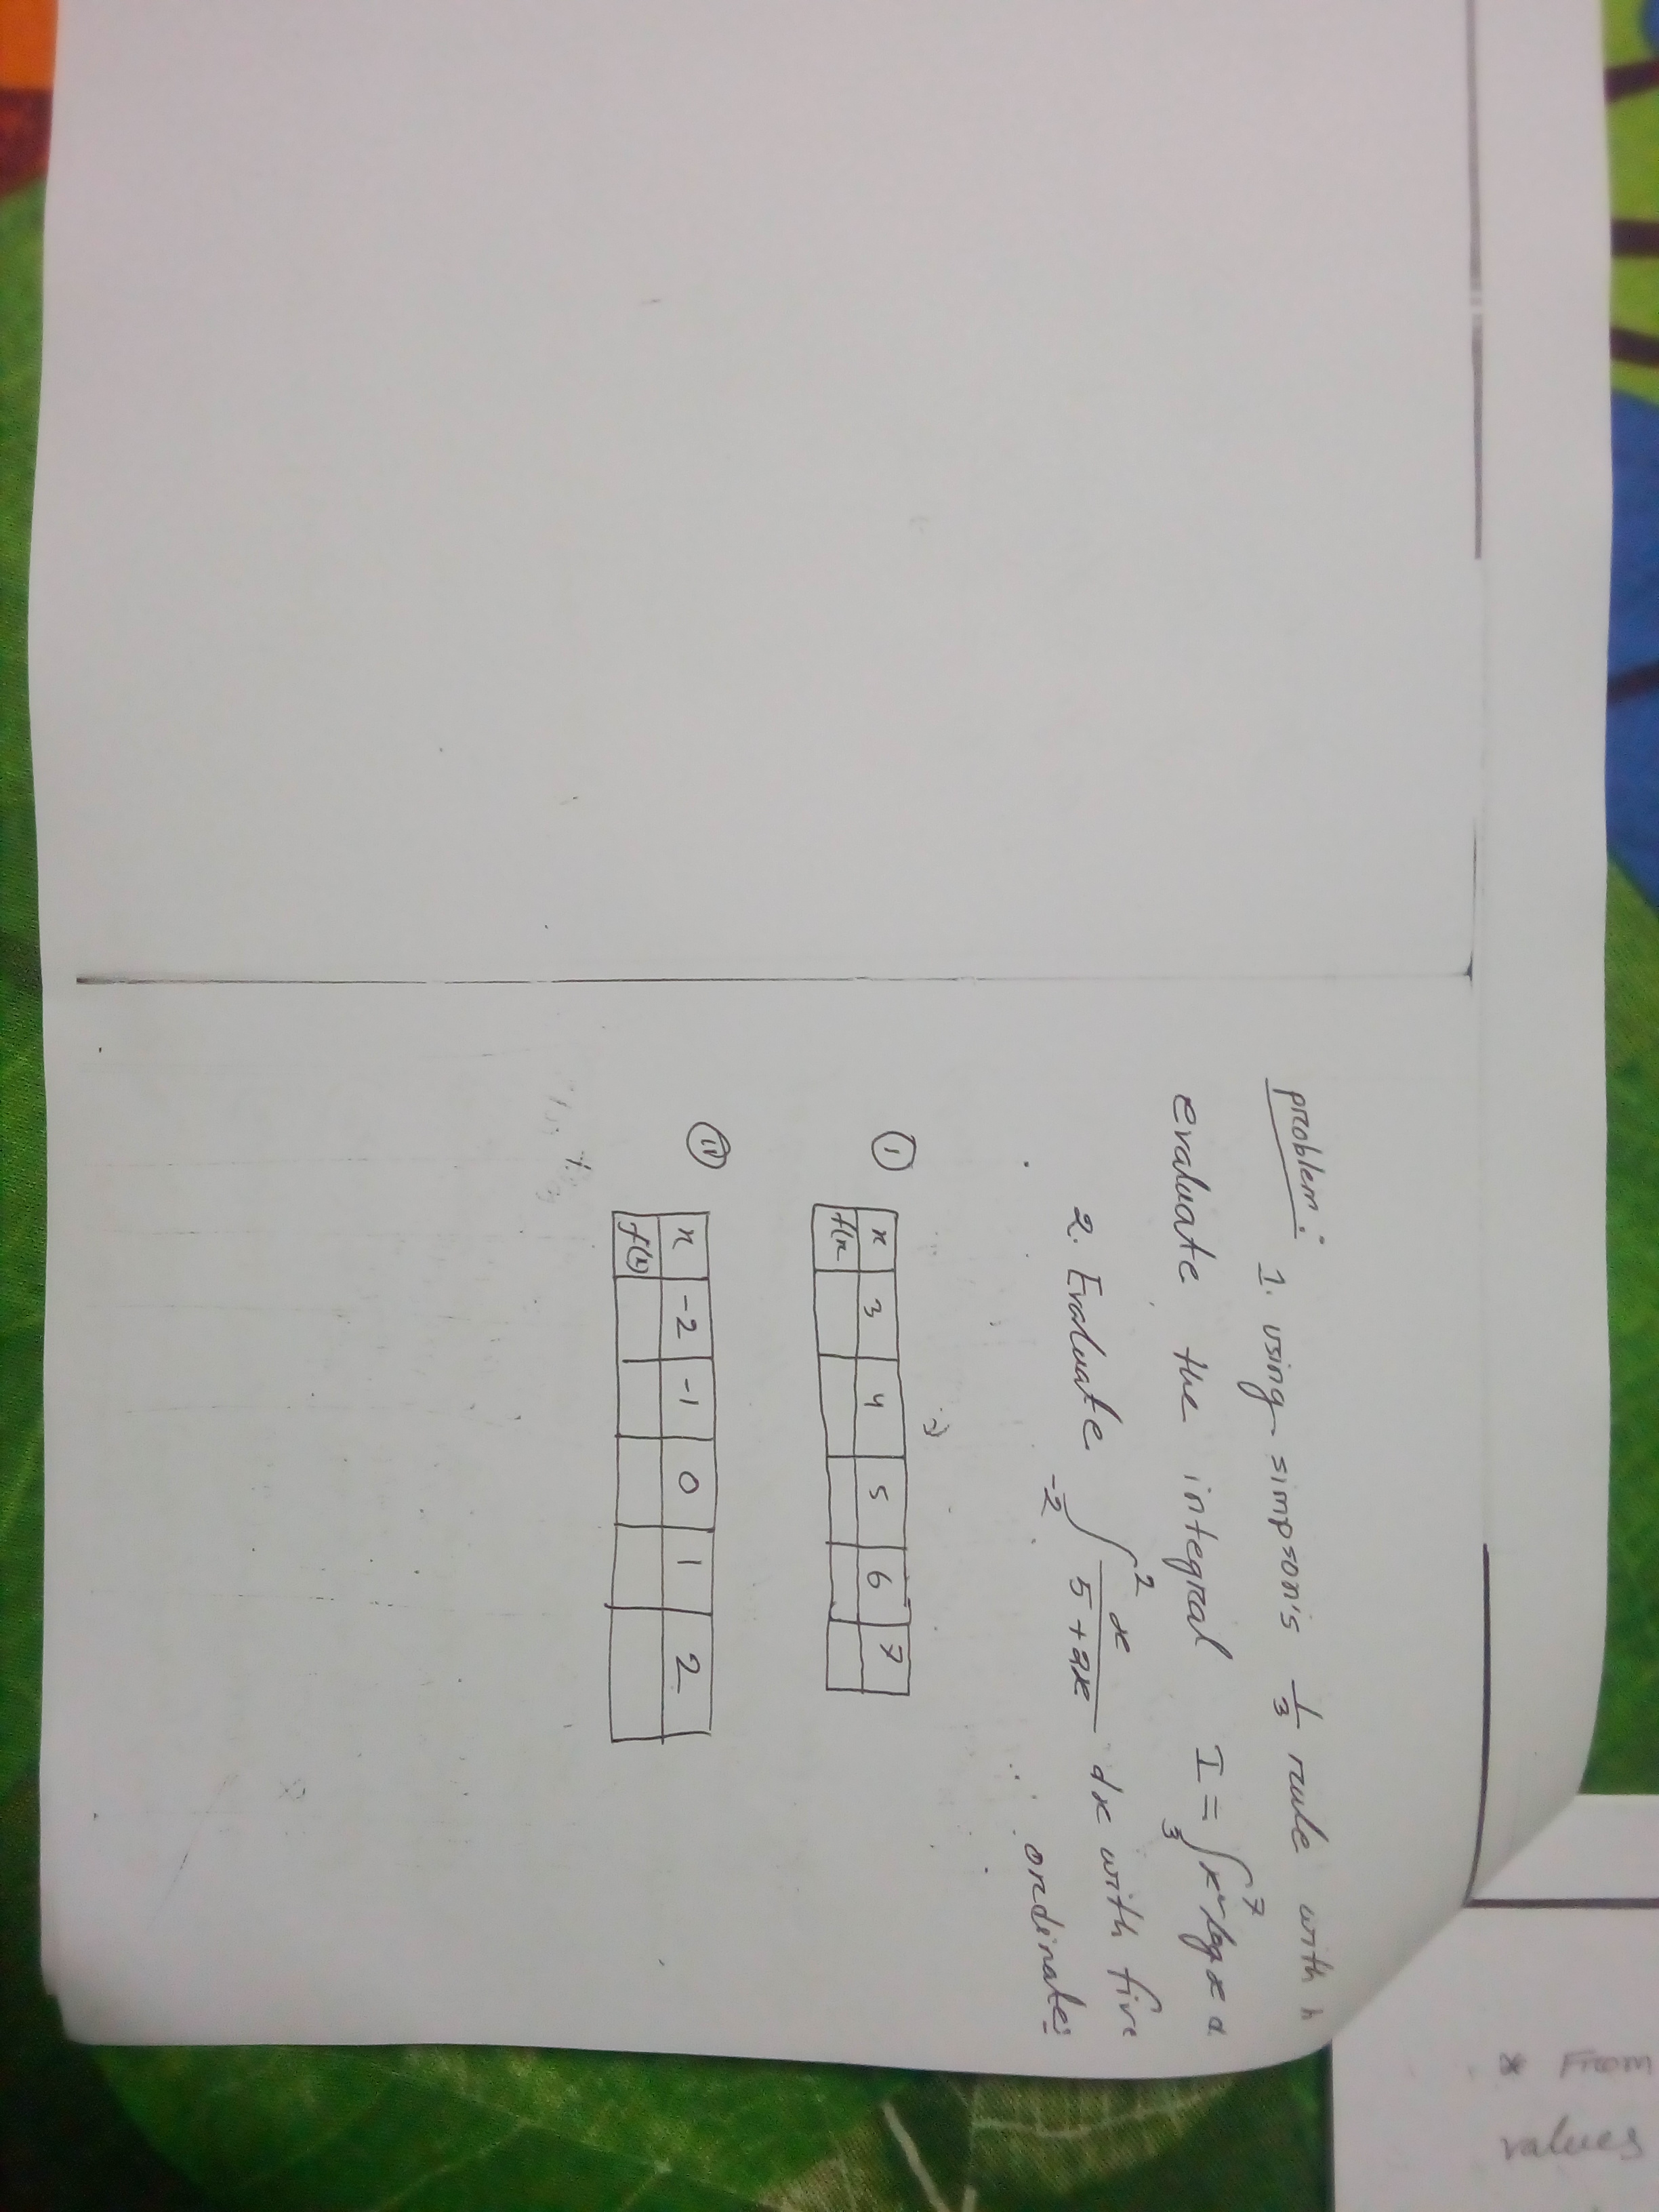 * From
values
problem:
1. using simpson's 1/3 rule with h
evaluate the integral I = ∫₃⁷ x² log x d
2. Evaluate ∫₋₂² x/(5+2x) dx with five
ordinates
(i)
x 3 4 5 6 7
f(x
(ii)
x -2 -1 0 1 2
f(x)